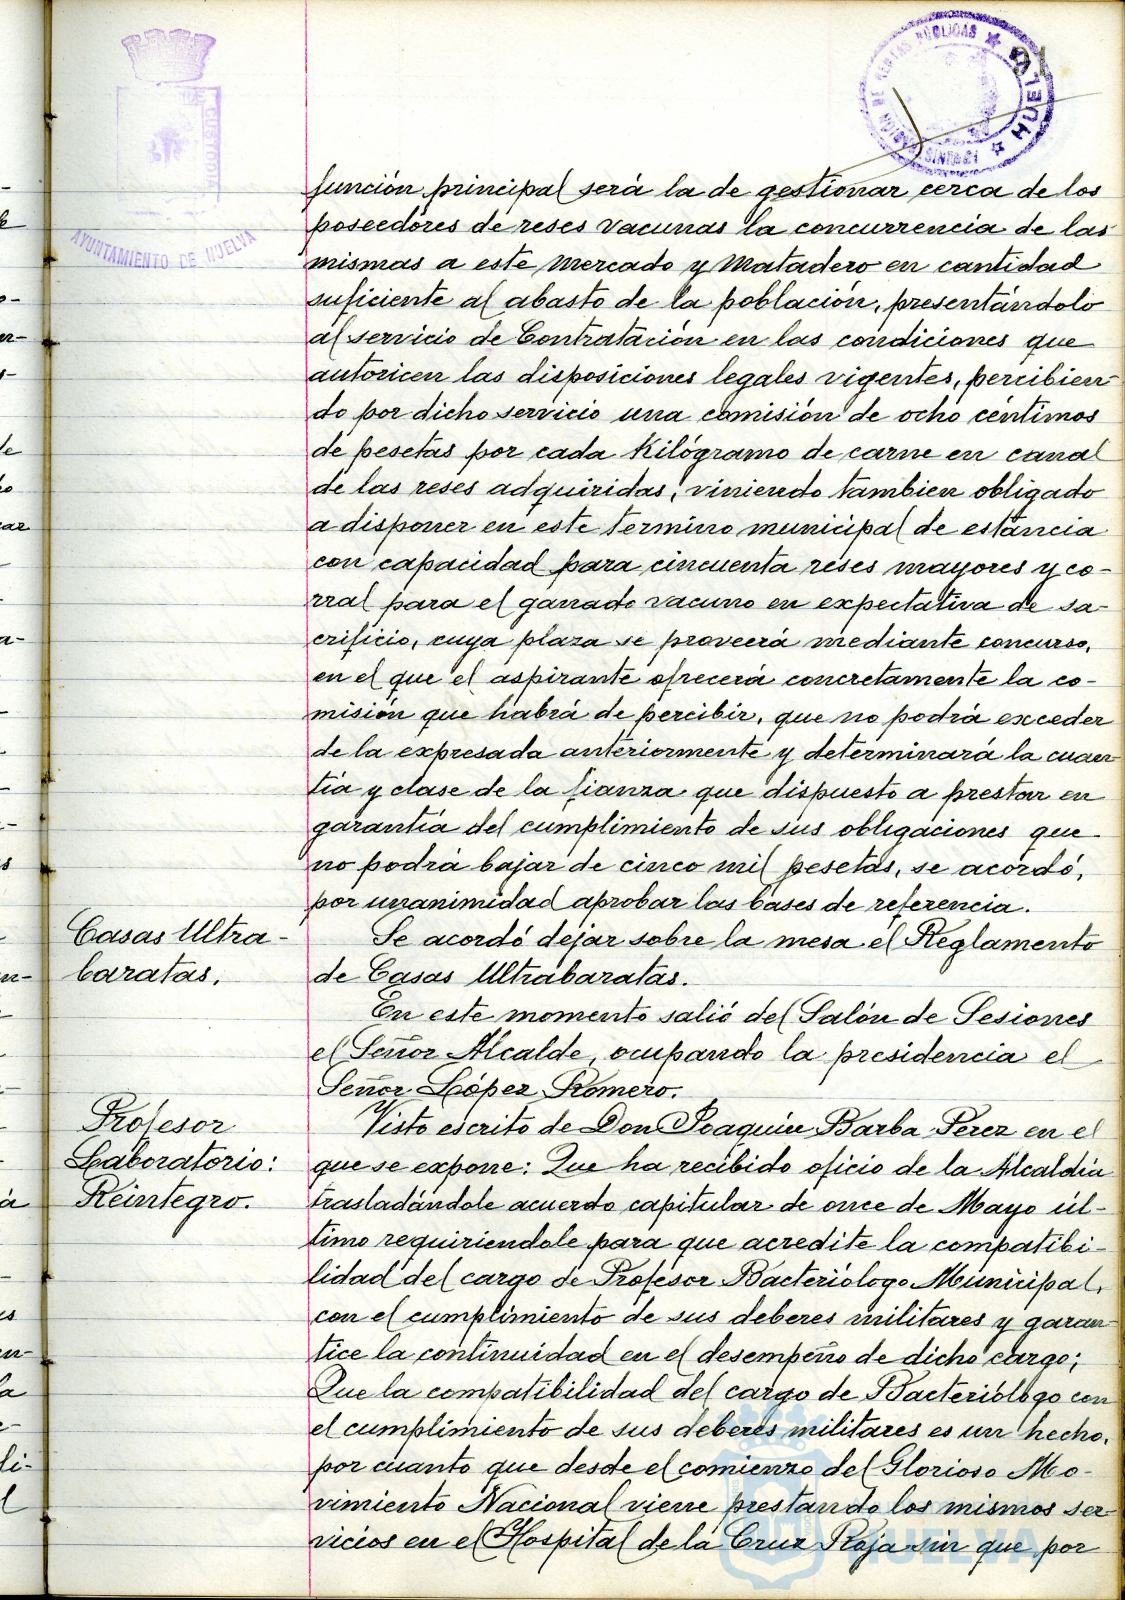 91
HUELVA
AYUNTAMIENTO DE HUELVA
función principal será la de gestionar cerca de los
poseedores de reses vacunas la concurrencia de las
mismas a este Mercado y Matadero en cantidad
suficiente al abasto de la población, presentándolo
al servicio de Contratación en las condiciones que
autoricen las disposiciones legales vigentes, percibien-
do por dicho servicio una comisión de ocho céntimos
de pesetas por cada Kilógramo de carne en canal
de las reses adquiridas, viniendo tambien obligado
a disponer en este termino municipal de estancia
con capacidad para cincuenta reses mayores y co-
rral para el ganado vacuno en expectativa de sa-
crificio, cuya plaza se proveerá mediante concurso,
en el que el aspirante ofrecerá concretamente la co-
misión que habrá de percibir, que no podrá exceder
de la expresada anteriormente y determinará la cuan-
tía y clase de la fianza que dispuesto a prestar en
garantía del cumplimiento de sus obligaciones que
no podrá bajar de cinco mil pesetas, se acordó,
por unanimidad aprobar las bases de referencia.
Casas Ultra-
baratas.
Se acordó dejar sobre la mesa el Reglamento
de Casas Ultrabaratas.
En este momento salió del Salón de Sesiones
el Señor Alcalde, ocupando la presidencia el
Señor López Romero.
Profesor
Laboratorio:
Reintegro.
Visto escrito de Don Joaquín Barba Perez en el
que se expone: Que ha recibido oficio de la Alcaldía
trasladándole acuerdo capitular de once de Mayo úl-
timo requiriendole para que acredite la compatibi-
lidad del cargo de Profesor Bacteriólogo Municipal,
con el cumplimiento de sus deberes militares y garan-
tice la continuidad en el desempeño de dicho cargo;
Que la compatibilidad del cargo de Bacteriólogo con
el cumplimiento de sus deberes militares es un hecho,
por cuanto que desde el comienzo del Glorioso Mo-
vimiento Nacional viene prestando los mismos ser-
vicios en el Hospital de la Cruz Roja sin que por
HUELVA